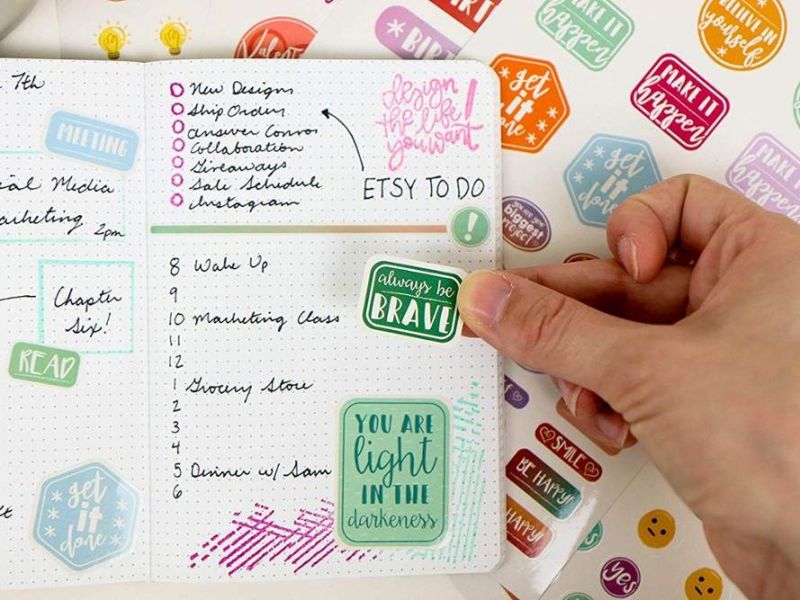 7th
MEETING
Media
Marketing
2pm
Chapter
Six!
READ
get
it
done
New Designs
Ship Orders
Answer Convos
Collaboration
Giveaways
Sale Schedule
Instagram
design
the life
you want!
ETSY TO DO
!
8 Wake Up
9
10 Marketing Class
11
12
1 Grocery Store
2
3
4
5 Dinner w/ Sam
6
always be
BRAVE
YOU ARE
light
IN THE
darkeness
Valent
BIR
IRT
MAKE IT
happen
BELIEVE IN
yourself
get
it
MAKE IT
happen
get
it
done
MAKE
happen
you are your
biggest
project
SMILE
BE HAPPY!
HAPPY!
yes